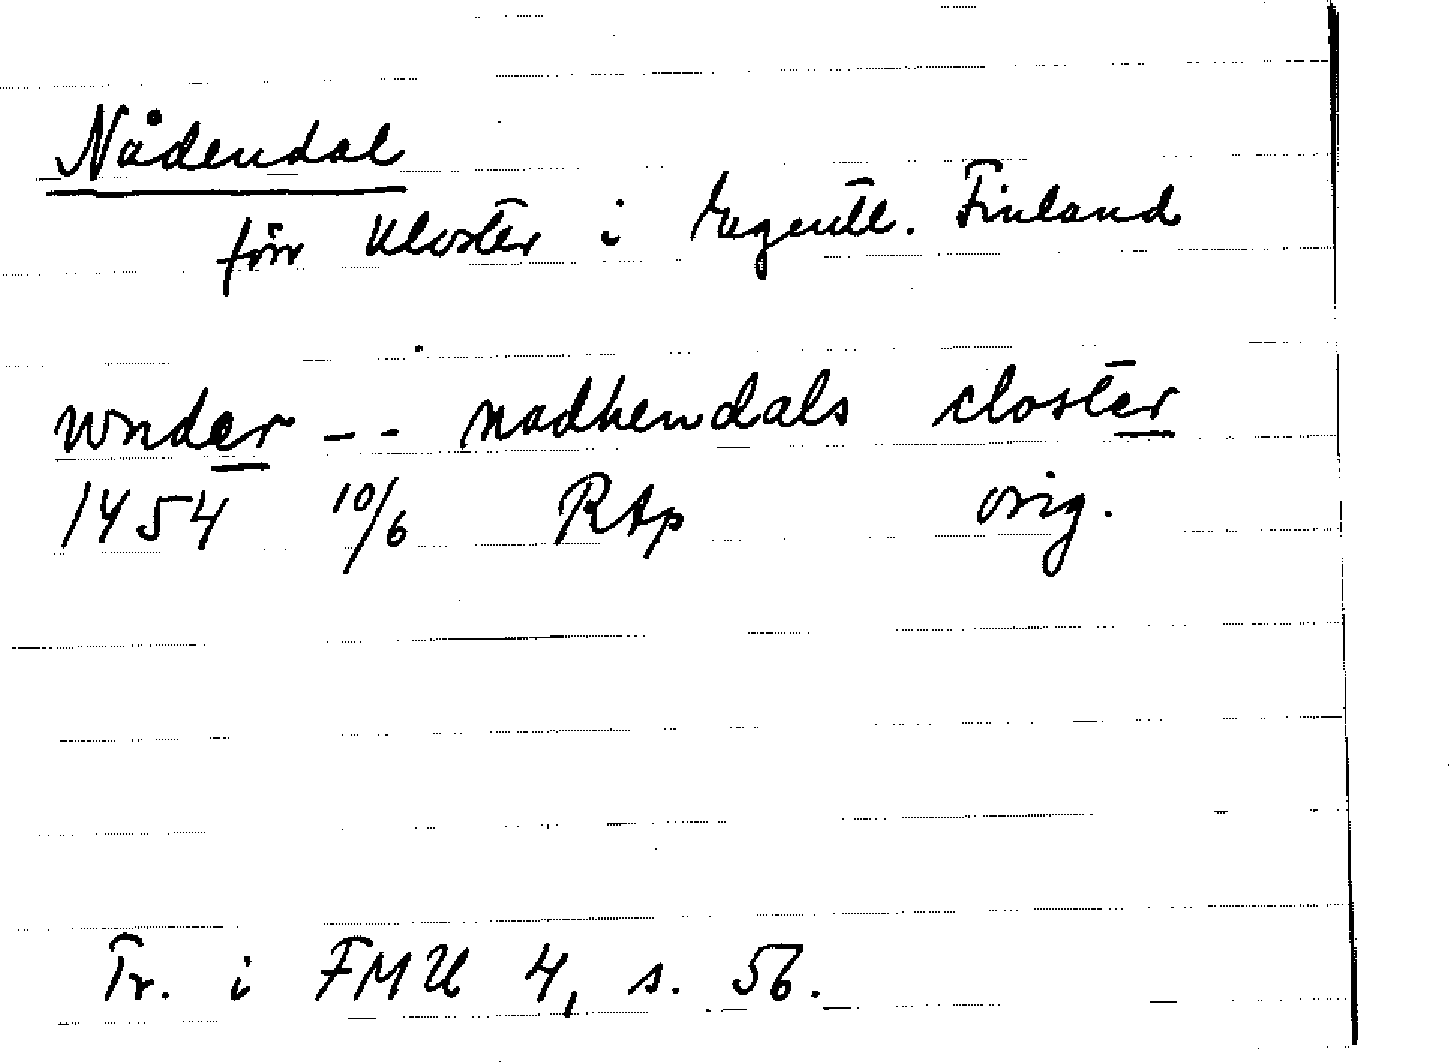 Nådendal
förr kloster i Egentl. Finland
wnder -- nadhendals closter
1454 10/6 RAp orig.
Tr. i FMU 4, s. 56.